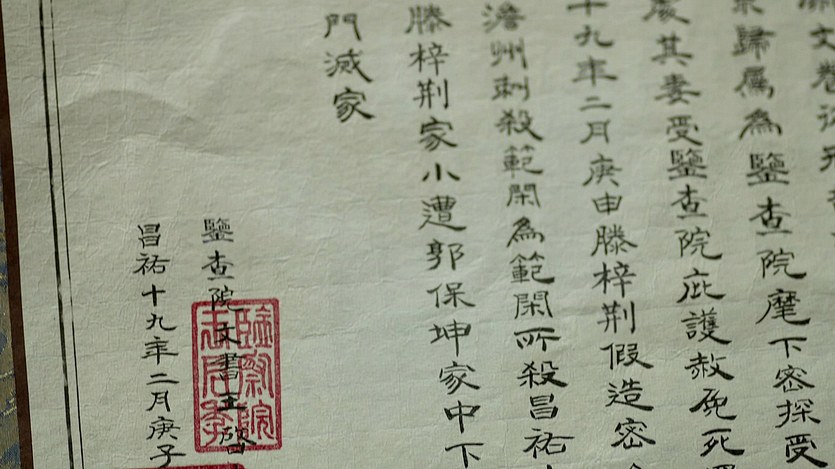 歸屬為鑒查院麾下密探受
其妻受鑒查院庇護赦免死
十九年二月庚申滕梓荊假造密
澹州刺殺範閑為範閑所殺昌祐
滕梓荊家小遭郭保坤家中下
門滅家
鑒查院文書王啓
昌祐十九年二月庚子